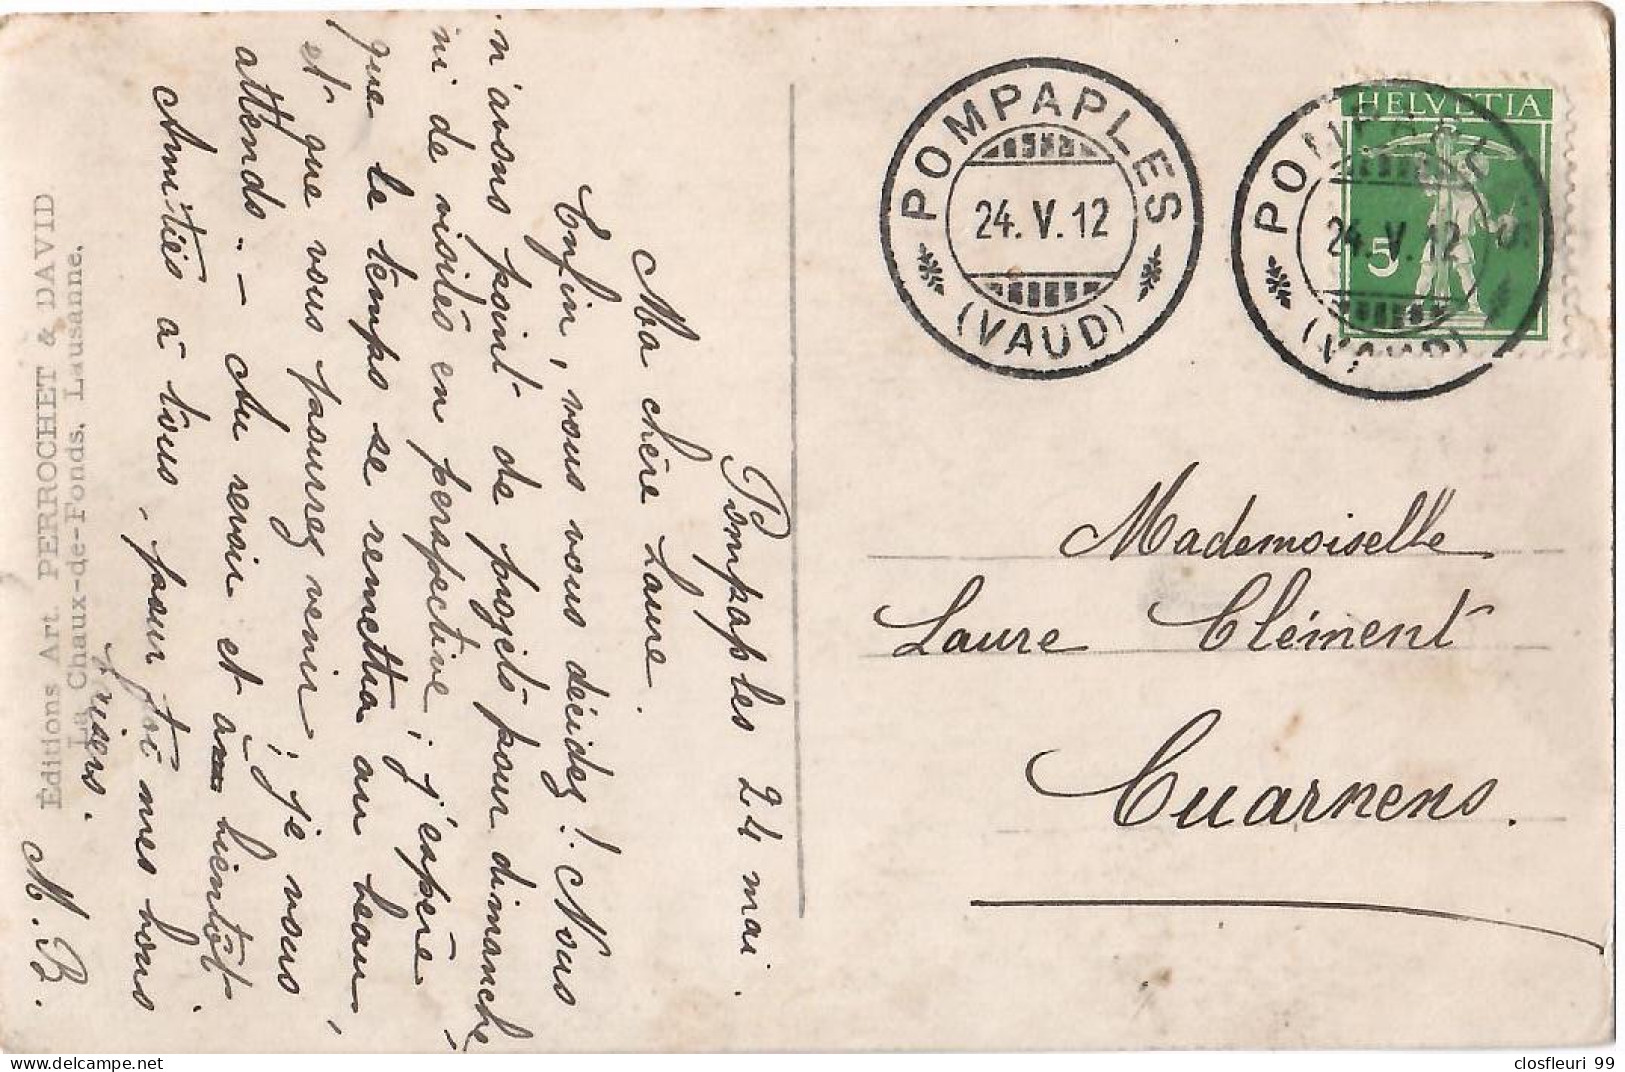 Pompaples 24 mai.
Ma chère Laure.
Enfin, vous vous décidez! Nous
n'avons point de projets pour dimanche,
ni de visites en perspective; j'espère
que le temps se remettra au beau,
et que vous pourrez venir; je vous
attends. – Au revoir et à bientôt.
Amitiés à tous, pour toi mes bons
baisers.
M. B.
Éditions Art. PERROCHET & DAVID
La Chaux-de-Fonds, Lausanne.
POMPAPLES
24. V. 12
(VAUD)
POMPAPLES
24. V. 12
(VAUD)
HELVETIA
5
Mademoiselle
Laure Clément
Cuarnens.
closfleuri 99